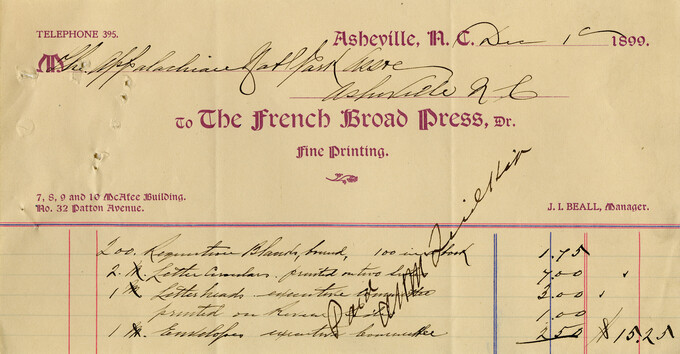 TELEPHONE 395.
Asheville, N. C. Dec 1 1899.
M The Appalachian Natl Park Assoc
Asheville N C
To The French Broad Press, Dr.
Fine Printing.
7, 8, 9 and 10 McAfee Building.
No. 32 Patton Avenue.
J. I. BEALL, Manager.
200 Requisition Blanks, bound, 100 in book 1.75
2 M. Letter Circulars printed on two 7.00
1 M Letterheads executive committee 3.00
printed on 1.00
1 M. Envelopes executive committee 2.50 $15.25
Paid